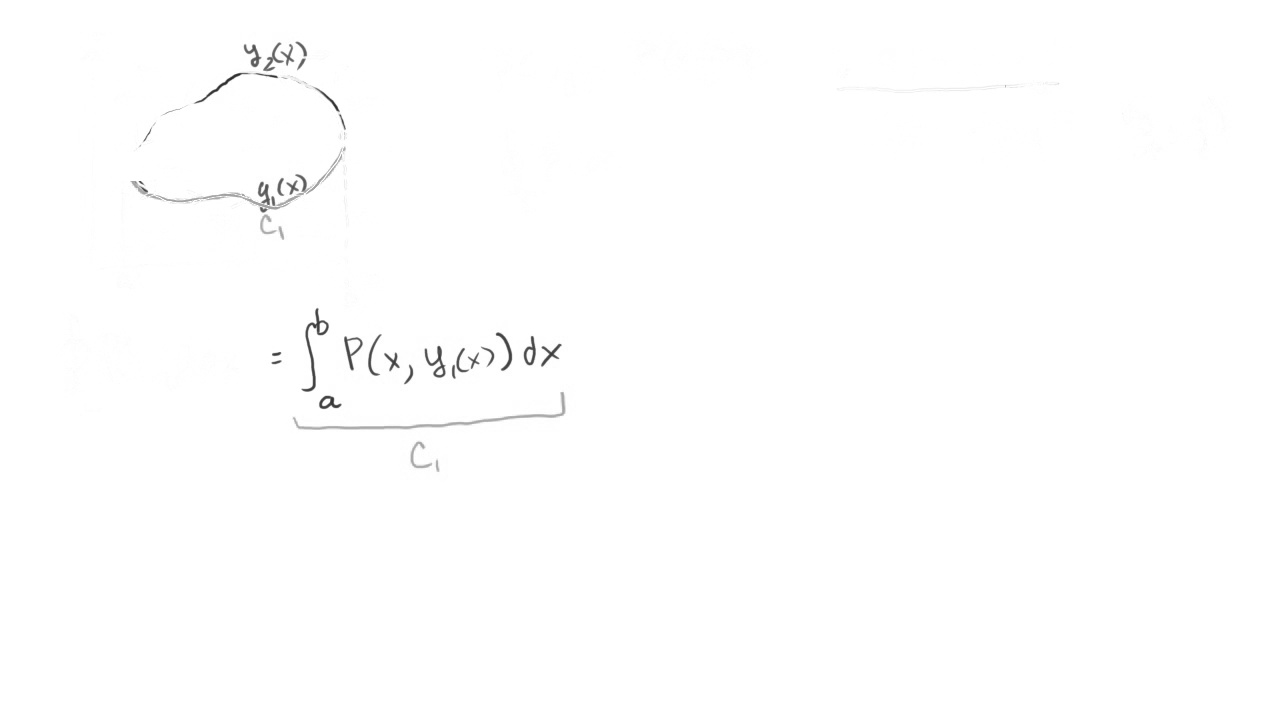 y₂(x)
y₁(x)
C₁
= ∫ₐᵇ P(x, y₁(x)) dx
C₁